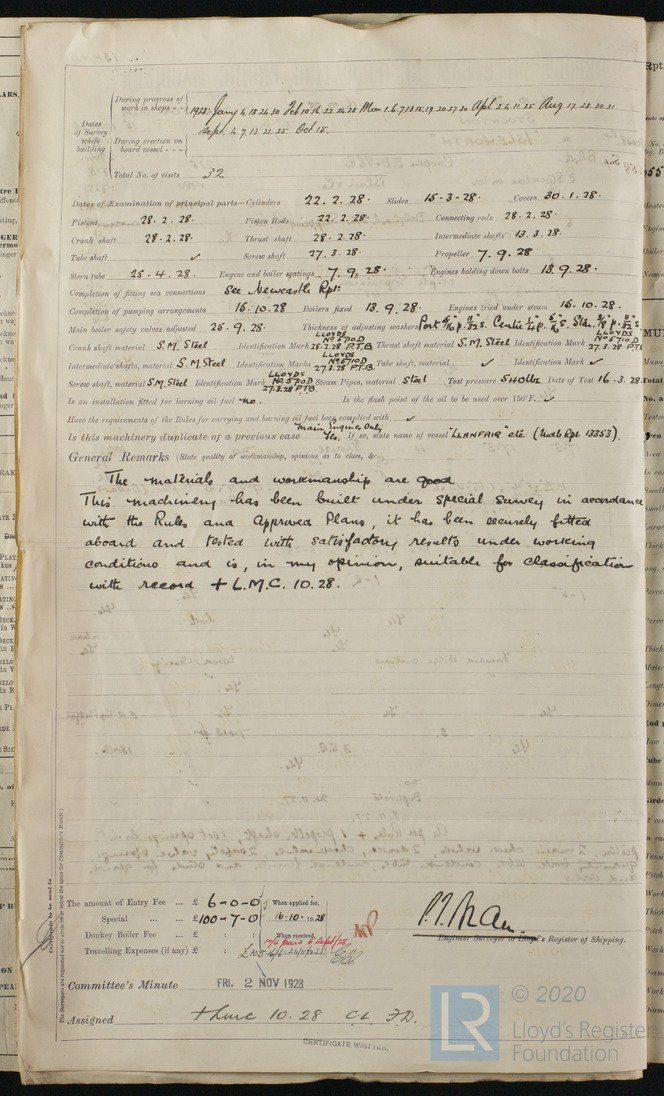 Dates of Survey while building
During progress of work in shops - - 1928. Jany 4.18.24.30 Feb 10.16.22.24.28 Mar 1.6.7.13.15.19.20.27.30 Apl. 2.4.11.25 Aug 17.28.30.31
Sept. 4.7.13.21.25. Oct 15.
During erection on board vessel - - -
Total No. of visits 32
Dates of Examination of principal parts—Cylinders 22.2.28. Slides 15-3-28. Covers 30.1.28.
Pistons 28.2.28. Piston Rods 22.2.28. Connecting rods 28.2.28.
Crank shaft 28.2.28. Thrust shaft 28.2.28. Intermediate shafts 13.3.28.
Tube shaft ✓ Screw shaft 27.3.28. Propeller 7.9.28.
Stern tube 25-4.28. Engine and boiler seatings 7.9.28. Engines holding down bolts 13.9.28.
Completion of fitting sea connections See Newcastle Rpt:
Completion of pumping arrangements 15.10.28 Boilers fixed 13.9.28. Engines tried under steam 15.10.28.
Main boiler safety valves adjusted 25.9.28. Thickness of adjusting washers Port
Crank shaft material S.M. Steel Identification Mark LLOYDS No 5710D 28.2.28 P.T.B. Thrust shaft material S.M. Steel Identification Mark LLOYDS No 5710D 27.3.28 P.T.B.
Intermediate shafts, material S.M. Steel Identification Marks LLOYDS No 5710D 27.3.28 P.T.B. Tube shaft, material ✓ Identification Mark ✓
Screw shaft, material S.M. Steel Identification Mark LLOYDS No 5710D 27.3.28 P.T.B. Steam Pipes, material Steel Test pressure 540 lbs Date of Test 16.3.28.
Is an installation fitted for burning oil fuel no. Is the flash point of the oil to be used over 150°F. ✓
Have the requirements of the Rules for carrying and burning oil fuel been complied with ✓
Is this machinery duplicate of a previous case Main Engines Only Yes. If so, state name of vessel "LLANFAIR" etc (Mdb Rpt 13353).
General Remarks (State quality of workmanship, opinions as to class, &c.
The materials and workmanship are good
This machinery has been built under special survey in accordance
with the Rules and Approved Plans, it has been securely fitted
aboard and tested with satisfactory results under working
conditions and is, in my opinion, suitable for classification
with record + L.M.C. 10.28.
Certificate to be sent to
The Surveyors are requested not to write on or below the space for Committee's Minute.
The amount of Entry Fee ... £ 6-0-0 When applied for,
Special ... ... £100-7-0 16.10.1928
Donkey Boiler Fee ... £ : When received,
Travelling Expenses (if any) £ :
Engineer Surveyor to Lloyd's Register of Shipping.
Committee's Minute FRI. 2 NOV 1928
Assigned + Lmc 10.28 CL. F.D.
CERTIFICATE WRITTEN.
LR © 2020
Lloyd's Register
Foundation